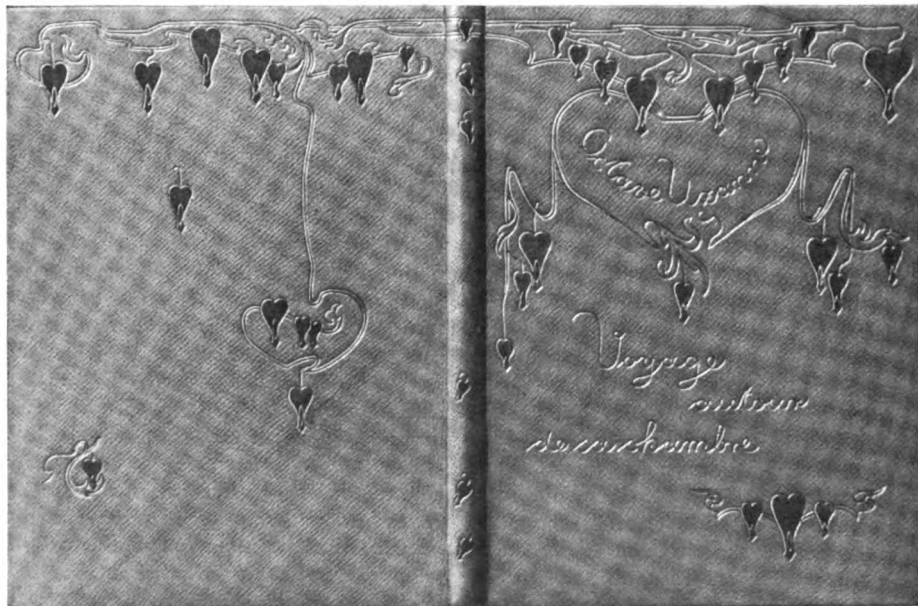 Octave Uzanne
Voyage
autour
de sa chambre